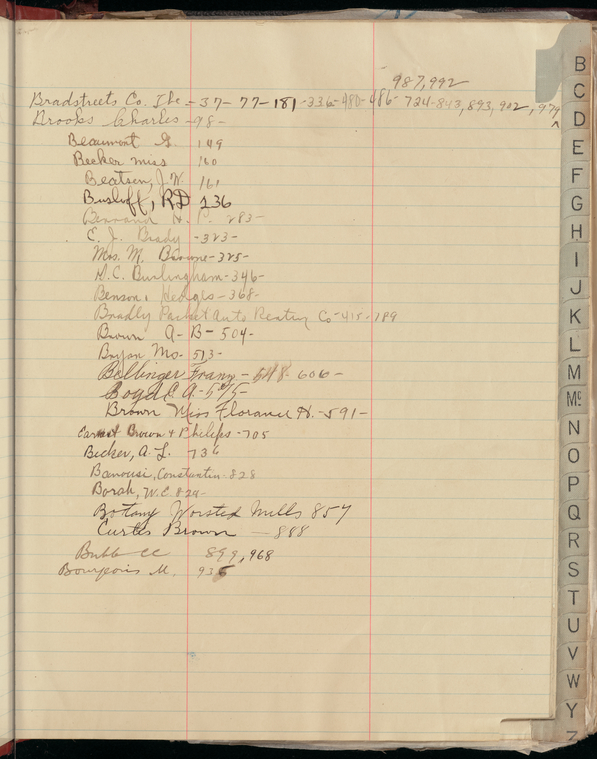 987,992
Bradstreets Co. The - 37 - 77 - 181 - 336 - 480 - 486 - 734 - 843, 893, 902, 979
Brooks Charles - 98 -
Beaumont G. 149
Becker miss 160
Beatsen, J.W. 161
RD 236
H. P. 283 -
E. J. Brady - 323 -
Mrs. M. Browne - 325 -
H.C. Burlingham - 346 -
Benson, Hedges - 368 -
Bradly Packet Auto Co - 415 - 789
Brown A - B - 504 -
Bryan Mo - 513 -
Bollinger Franz - 548 - 606 -
Boyd C A. - 575 -
Brown Miss Florance H. - 591 -
Brown & Philips - 705
Becker, A. L. 736
Banousi, Constantin - 828
Borak, W.C. 829 -
Botany Worsted Mills 857
Curtis Brown - 888
Bubb CC 899, 968
Bourgeois M. 936
B
C
D
E
F
G
H
I
J
K
L
M
Mc
N
O
P
Q
R
S
T
U
V
W
Y
Z